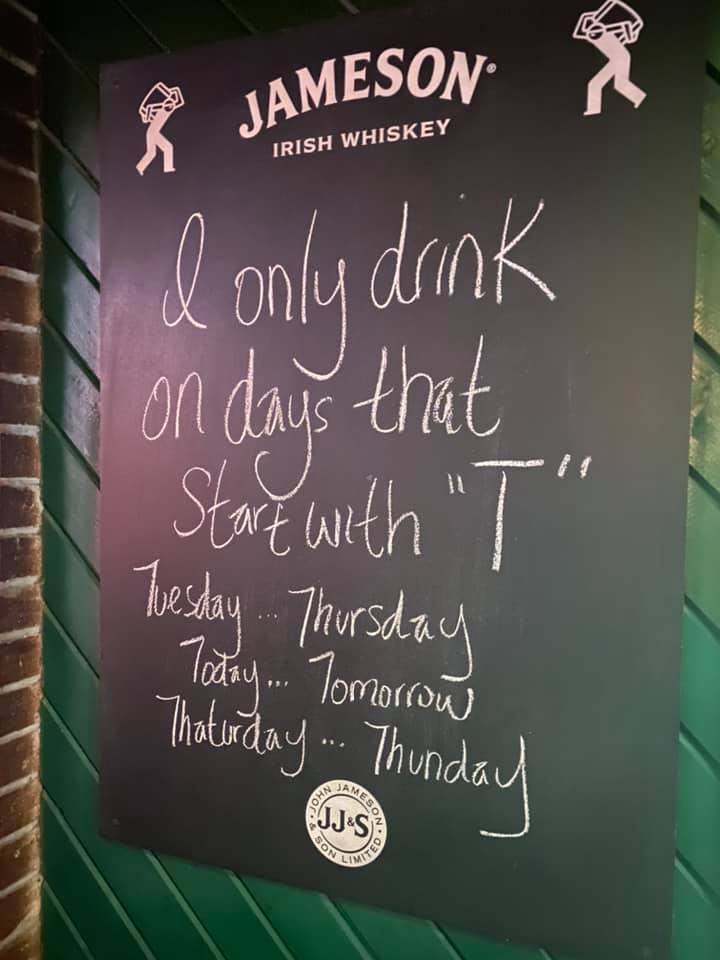 JAMESON®
IRISH WHISKEY
I only drink
on days that
Start with "T"
Tuesday... Thursday
Today... Tomorrow
Thaturday... Thunday
JOHN JAMESON
JJ&S
& SON LIMITED